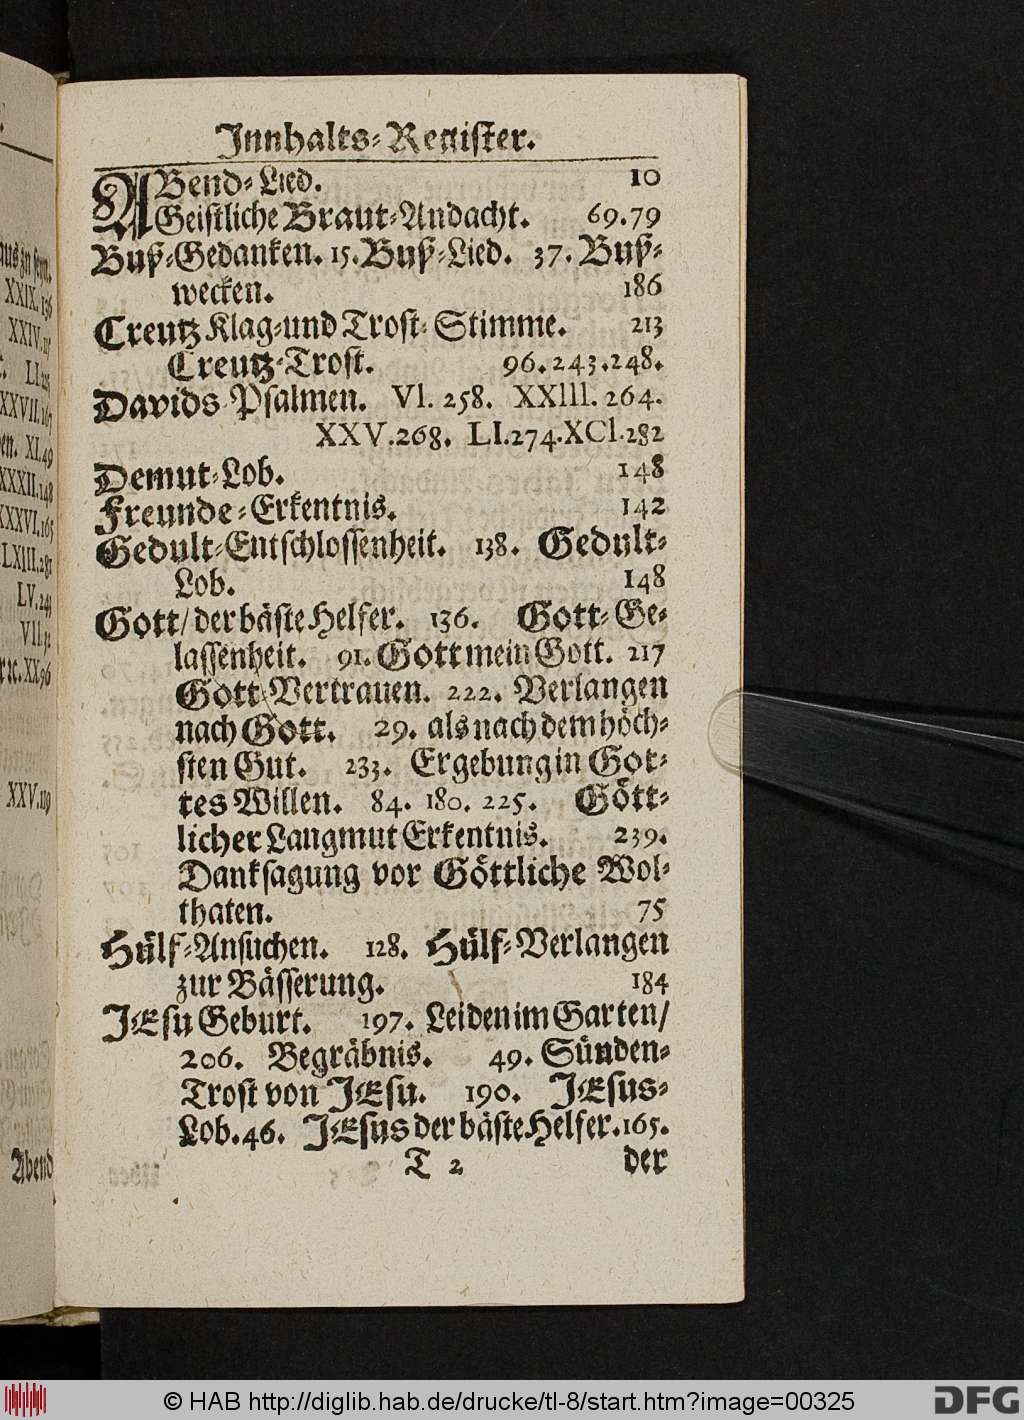 Innhalts-Register.
ABend-Lied. 10
Geistliche Braut-Andacht. 69.79
Buß-Gedanken. 15. Buß-Lied. 37. Buß-
wecken. 186
Creutz Klag-und Trost-Stimme. 213
Creutz-Trost. 96.243.248.
Davids-Psalmen. Vl. 258. XXlll. 264.
XXV.268. LI.274.XCl.282
Demut-Lob. 148
Freunde-Erkentnis. 142
Gedult-Entschlossenheit. 138. Gedult-
Lob. 148
Gott/ der bäste Helfer. 136. Gott-Ge-
lassenheit. 91. Gott mein Gott. 217
Gott-Vertrauen. 222. Verlangen
nach Gott. 29. als nach dem höch-
sten Gut. 233. Ergebung in Got-
tes Willen. 84. 180. 225. Gött-
licher Langmut Erkentnis. 239.
Danksagung vor Göttliche Wol-
thaten. 75
Hülf-Ansuchen. 128. Hülf-Verlangen
zur Bässerung. 184
JEsu Geburt. 197. Leiden im Garten/
206. Begräbnis. 49. Sünden-
Trost von JEsu. 190. JEsus-
Lob. 46. JEsus der bäste Helfer. 165.
T 2 der
aus zu seyn.
XXIX.136
XXIV.
LI.
XXVII.167
XI.49
XXXII.148
XXXVI.165
LXIII.281
LV.243
VII.
XX.96
XXV.119
Abend
© HAB http://diglib.hab.de/drucke/tl-8/start.htm?image=00325
DFG